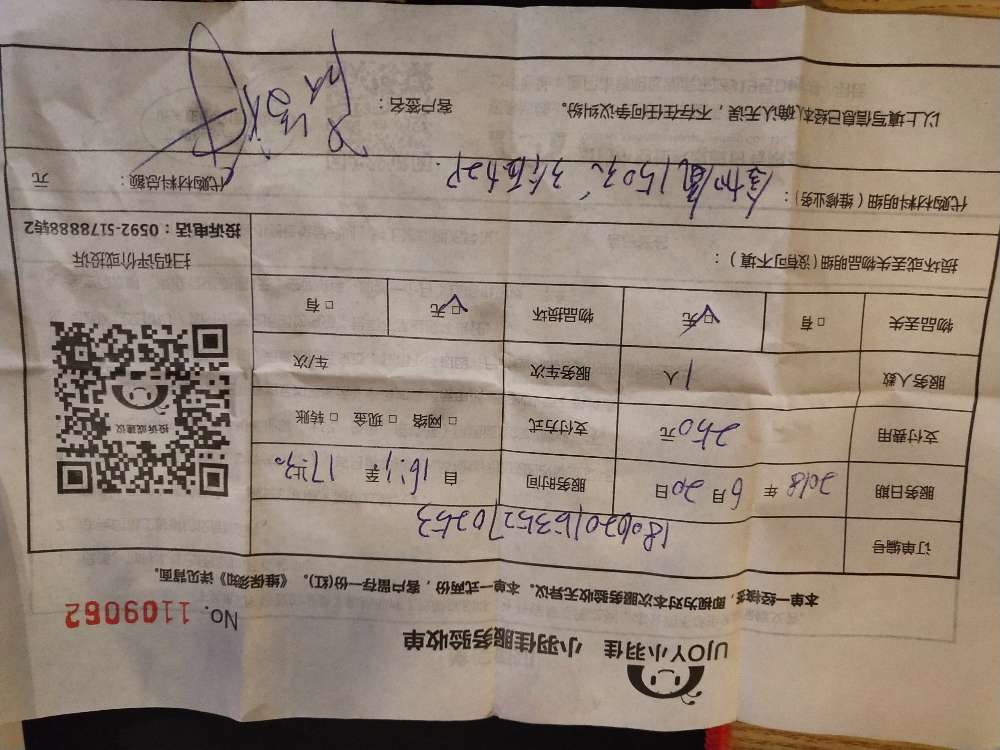 UJOY小羽佳 小羽佳服务验收单
No. 1109062
本单一经签字，即视为对本次服务验收无异议。本单一式两份，客户留存一份(红)。《维保须知》详见背面。
订单编号 18062016352 70253
服务日期 2018 年 6 月 20 日 服务时间 自 16:1 至 17:30 止
支付费用 250 元 支付方式 □ 网络 □ 现金 □ 转账
服务人数 1 人 服务车次 车/次
物品丢失 □ 有 □ 无 物品损坏 □ 无 □ 有
损坏或丢失物品明细 (没有可不填)：
投诉或建议
扫码评价或投诉
投诉电话：0592-5178888转2
代购材料明细（维修业务）： 加氟150元
代购材料总额： 元
以上填写信息已经本人确认无误，不存在任何争议纠纷。 客户签名：